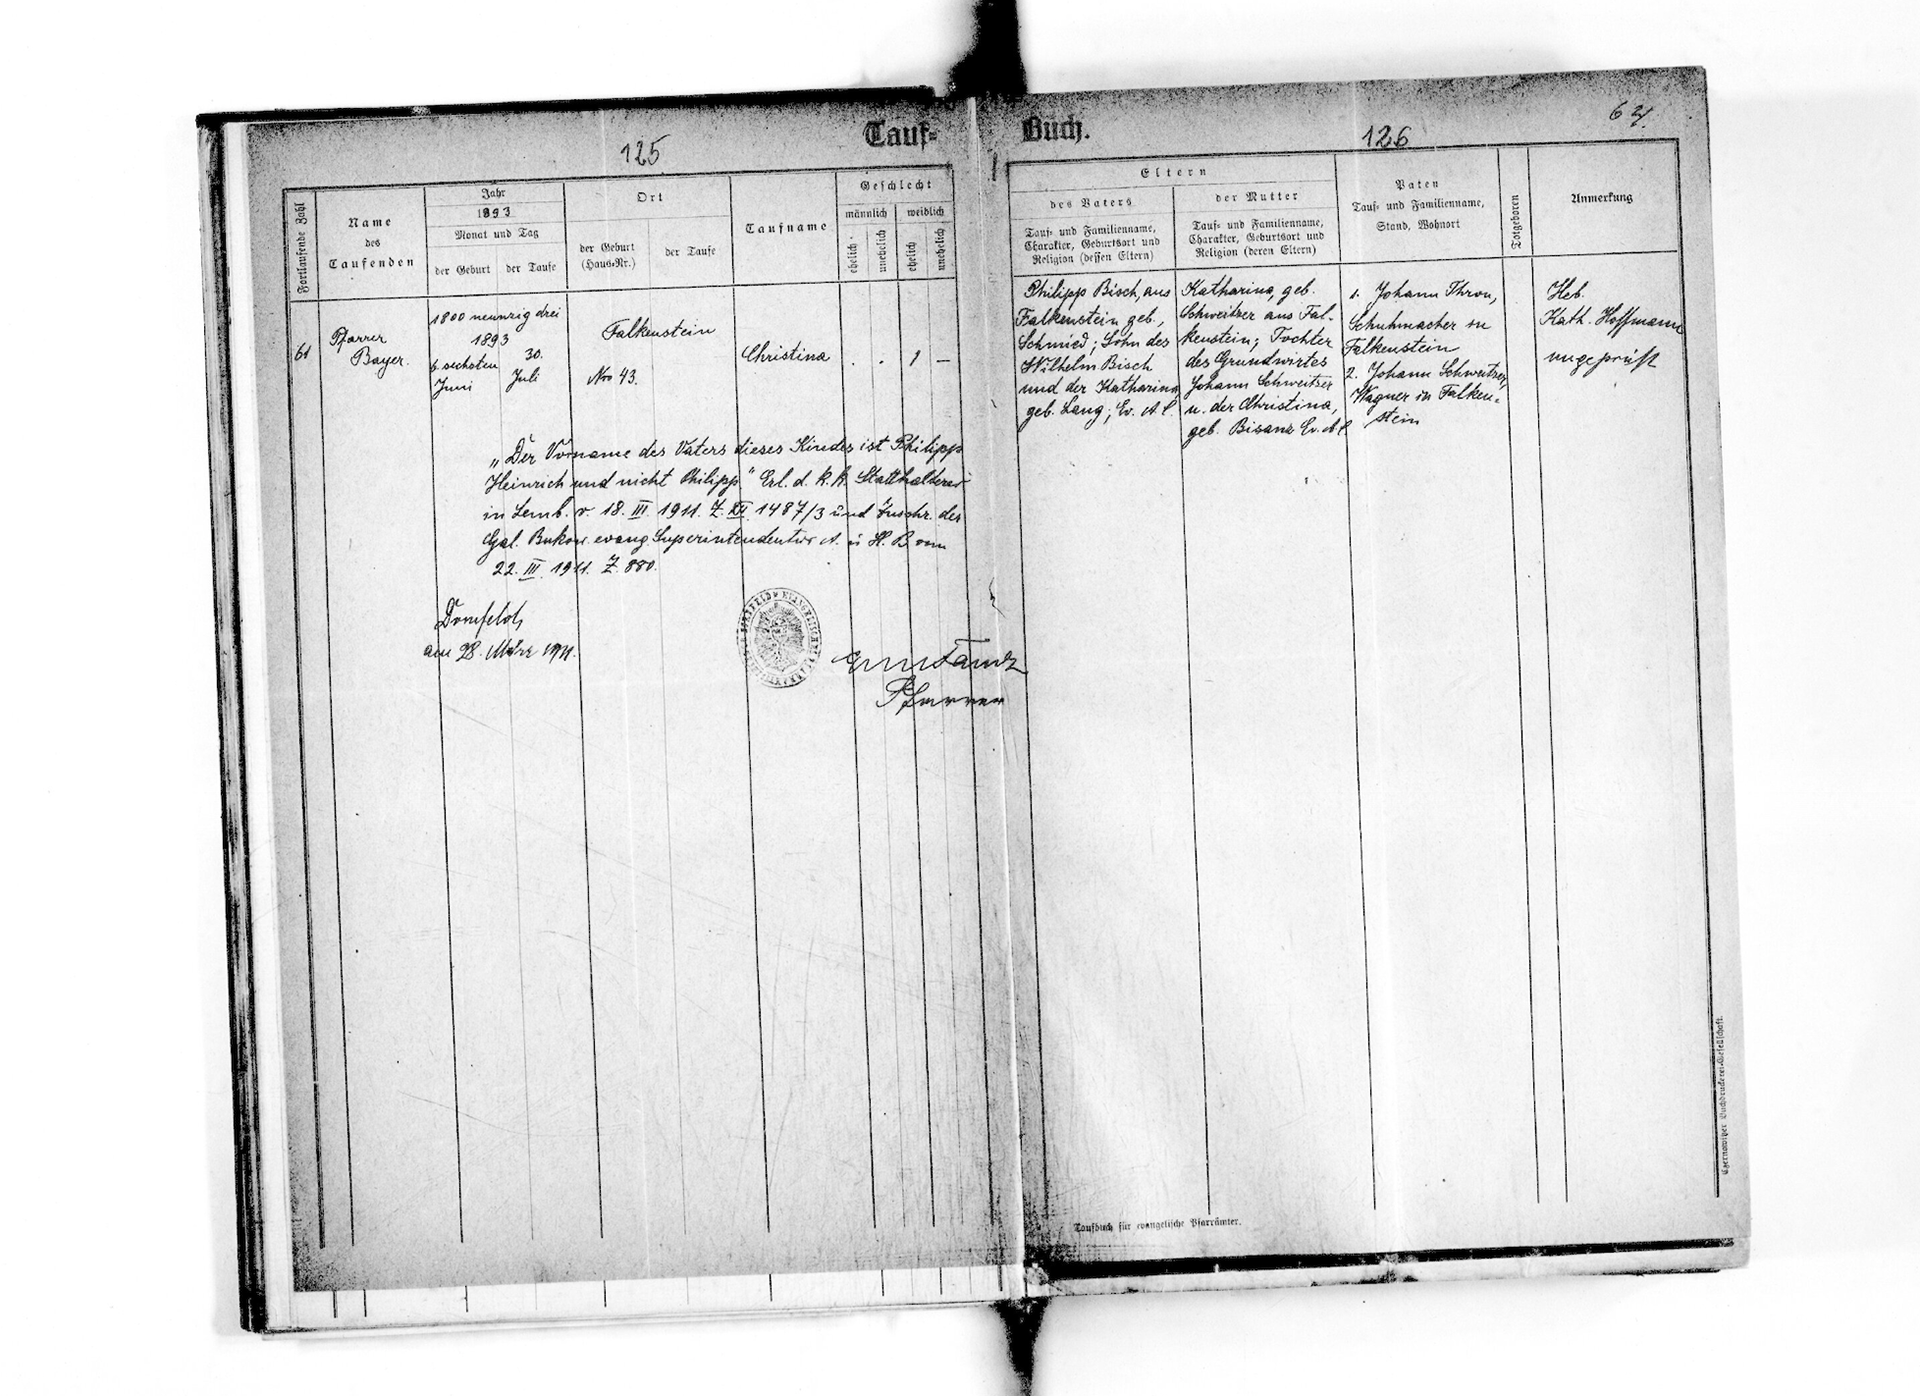 125
Tauf-
Fortlaufende Zahl
Name
des
Taufenden
Jahr
1893
Monat und Tag
der Geburt
der Taufe
Ort
der Geburt
(Haus-Nr.)
der Taufe
Taufname
Geschlecht
männlich
weiblich
ehelich
unehelich
ehelich
unehelich
61
Pfarrer
Bayer.
1800 neunzig drei
1893
6. sechsten
Juni
30.
Juli
Falkenstein
Nro 43.
Christina
. . 1 —
„Der Vorname des Vaters dieses Kindes ist Philipp
Heinrich und nicht Philipp" Erl. d. k. k. Statthalterei
in Lemb. v. 18. III. 1911. Z. XV. 1487/3 und Zuschr. der
Gal. Bukow. evang Superintendentur A. u H. B. vom
22. III. 1911. Z. 880.
Dornfeld,
am 28. März 1911.
Pfarrer
Buch.
126
64.
Eltern
des Vaters
Tauf- und Familienname,
Charakter, Geburtsort und
Religion (dessen Eltern)
der Mutter
Tauf- und Familienname,
Charakter, Geburtsort und
Religion (deren Eltern)
Paten
Tauf- und Familienname,
Stand, Wohnort
Totgeboren
Anmerkung
Philipp Bisch, aus
Falkenstein geb.,
Schmied; Sohn des
Wilhelm Bisch
und der Katharina
geb. Lang; Ev. A. C.
Katharina, geb.
Schweitzer aus Fal-
kenstein; Tochter
des Grundwirtes
Johann Schweitzer
u. der Christina,
geb. Bisanz Ev. A. C.
1. Johann Thron,
Schuhmacher in
Falkenstein
2. Johann Schweitzer,
Wagner in Falken-
stein
Heb.
Kath. Hoffmann
ungeprüft
Taufbuch für evangelische Pfarrämter.
Czernowitzer Buchdruckerei-Gesellschaft.